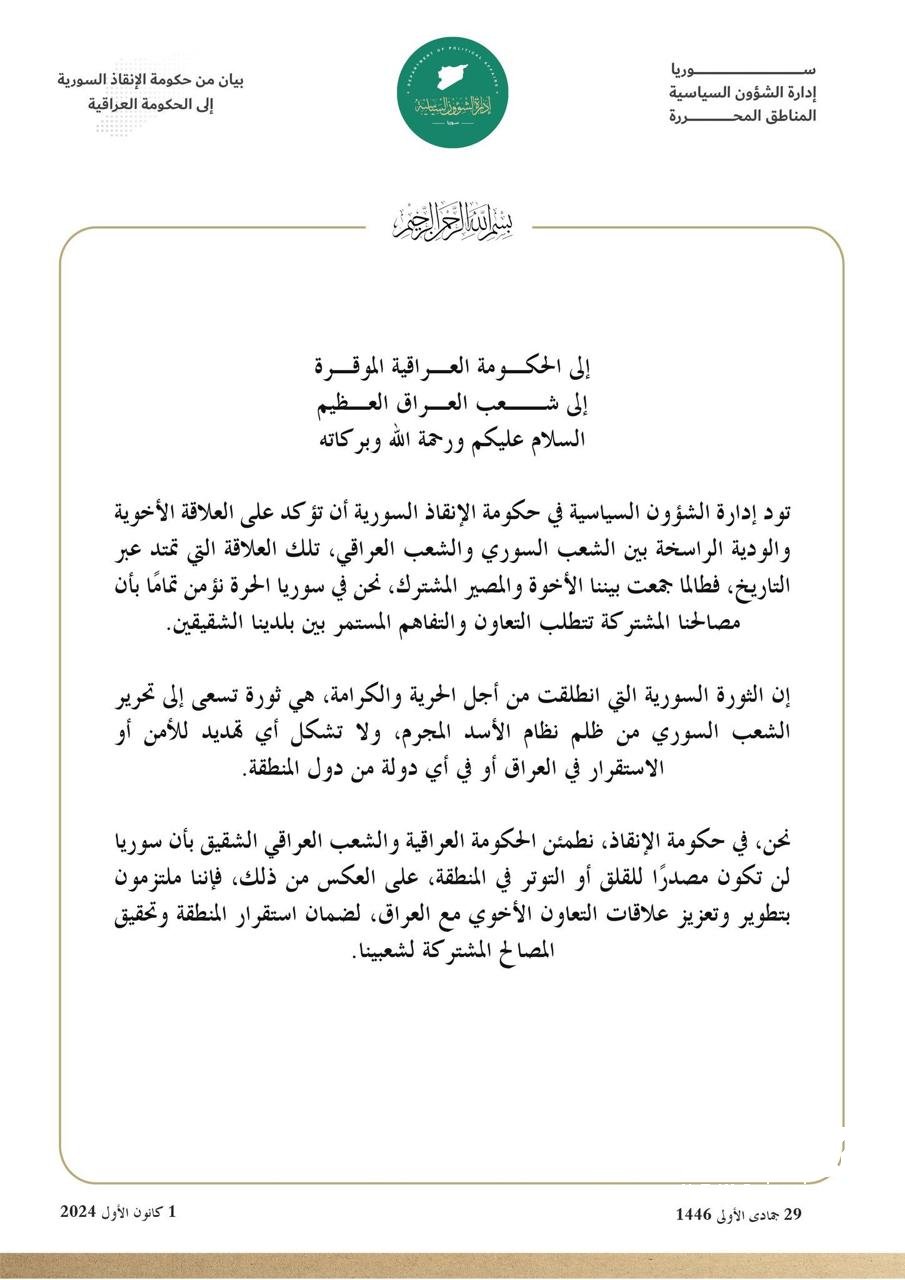 ســـــــــــــوريا
إدارة الشؤون السياسية
المناطق المحـــــــررة
DEPARTMENT OF POLITICAL AFFAIRS
إدارة الشؤون السياسية
سوريا
بيان من حكومة الإنقاذ السورية
إلى الحكومة العراقية
بسم الله الرحمن الرحيم
إلى الحكـــومة العـــراقية الموقـــرة
إلى شـــــعب العـــراق العـــظيم
السلام عليكم ورحمة الله وبركاته
تود إدارة الشؤون السياسية في حكومة الإنقاذ السورية أن تؤكد على العلاقة الأخوية
والودية الراسخة بين الشعب السوري والشعب العراقي، تلك العلاقة التي تمتد عبر
التاريخ، فطالما جمعت بيننا الأخوة والمصير المشترك، نحن في سوريا الحرة نؤمن تمامًا بأن
مصالحنا المشتركة تتطلب التعاون والتفاهم المستمر بين بلدينا الشقيقين.
إن الثورة السورية التي انطلقت من أجل الحرية والكرامة، هي ثورة تسعى إلى تحرير
الشعب السوري من ظلم نظام الأسد المجرم، ولا تشكل أي تهديد للأمن أو
الاستقرار في العراق أو في أي دولة من دول المنطقة.
نحن، في حكومة الإنقاذ، نطمئن الحكومة العراقية والشعب العراقي الشقيق بأن سوريا
لن تكون مصدرًا للقلق أو التوتر في المنطقة، على العكس من ذلك، فإننا ملتزمون
بتطوير وتعزيز علاقات التعاون الأخوي مع العراق، لضمان استقرار المنطقة وتحقيق
المصالح المشتركة لشعبينا.
29 جمادى الأولى 1446
1 كانون الأول 2024